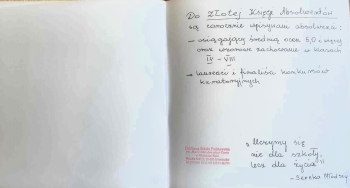 Do Złotej Księgi Absolwentów
są corocznie wpisywani absolwenci:
- osiągający średnią ocen 5,0 i więcej
oraz wzorowe zachowanie w klasach
IV - VIII
- laureaci i finaliści konkursów
kuratoryjnych
"Uczymy się
nie dla szkoły,
lecz dla życia"
- Seneka Młodszy